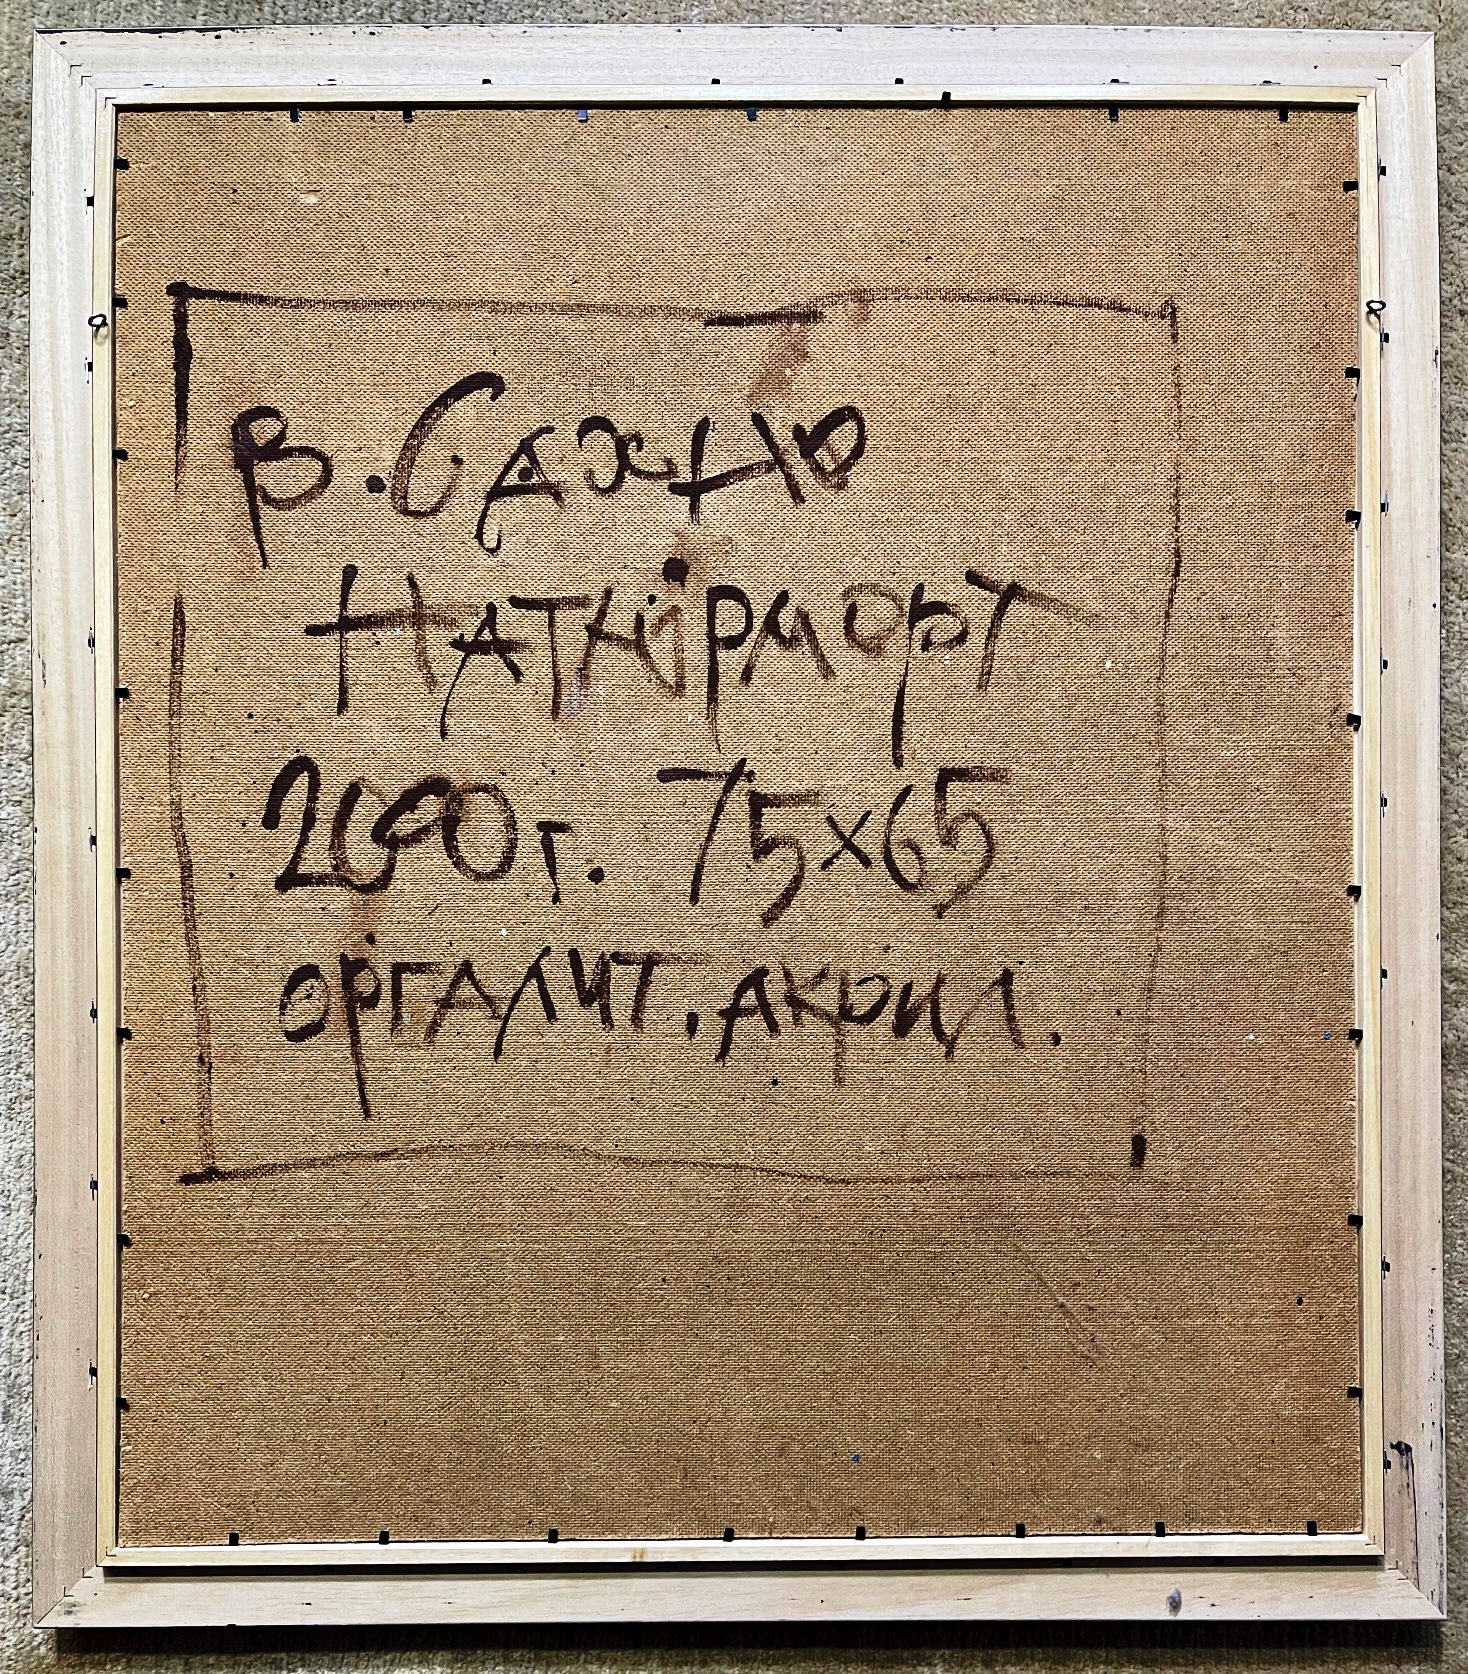 В. Сахно
Натюрморт
2000г. 75х65
оргалит. акрил.